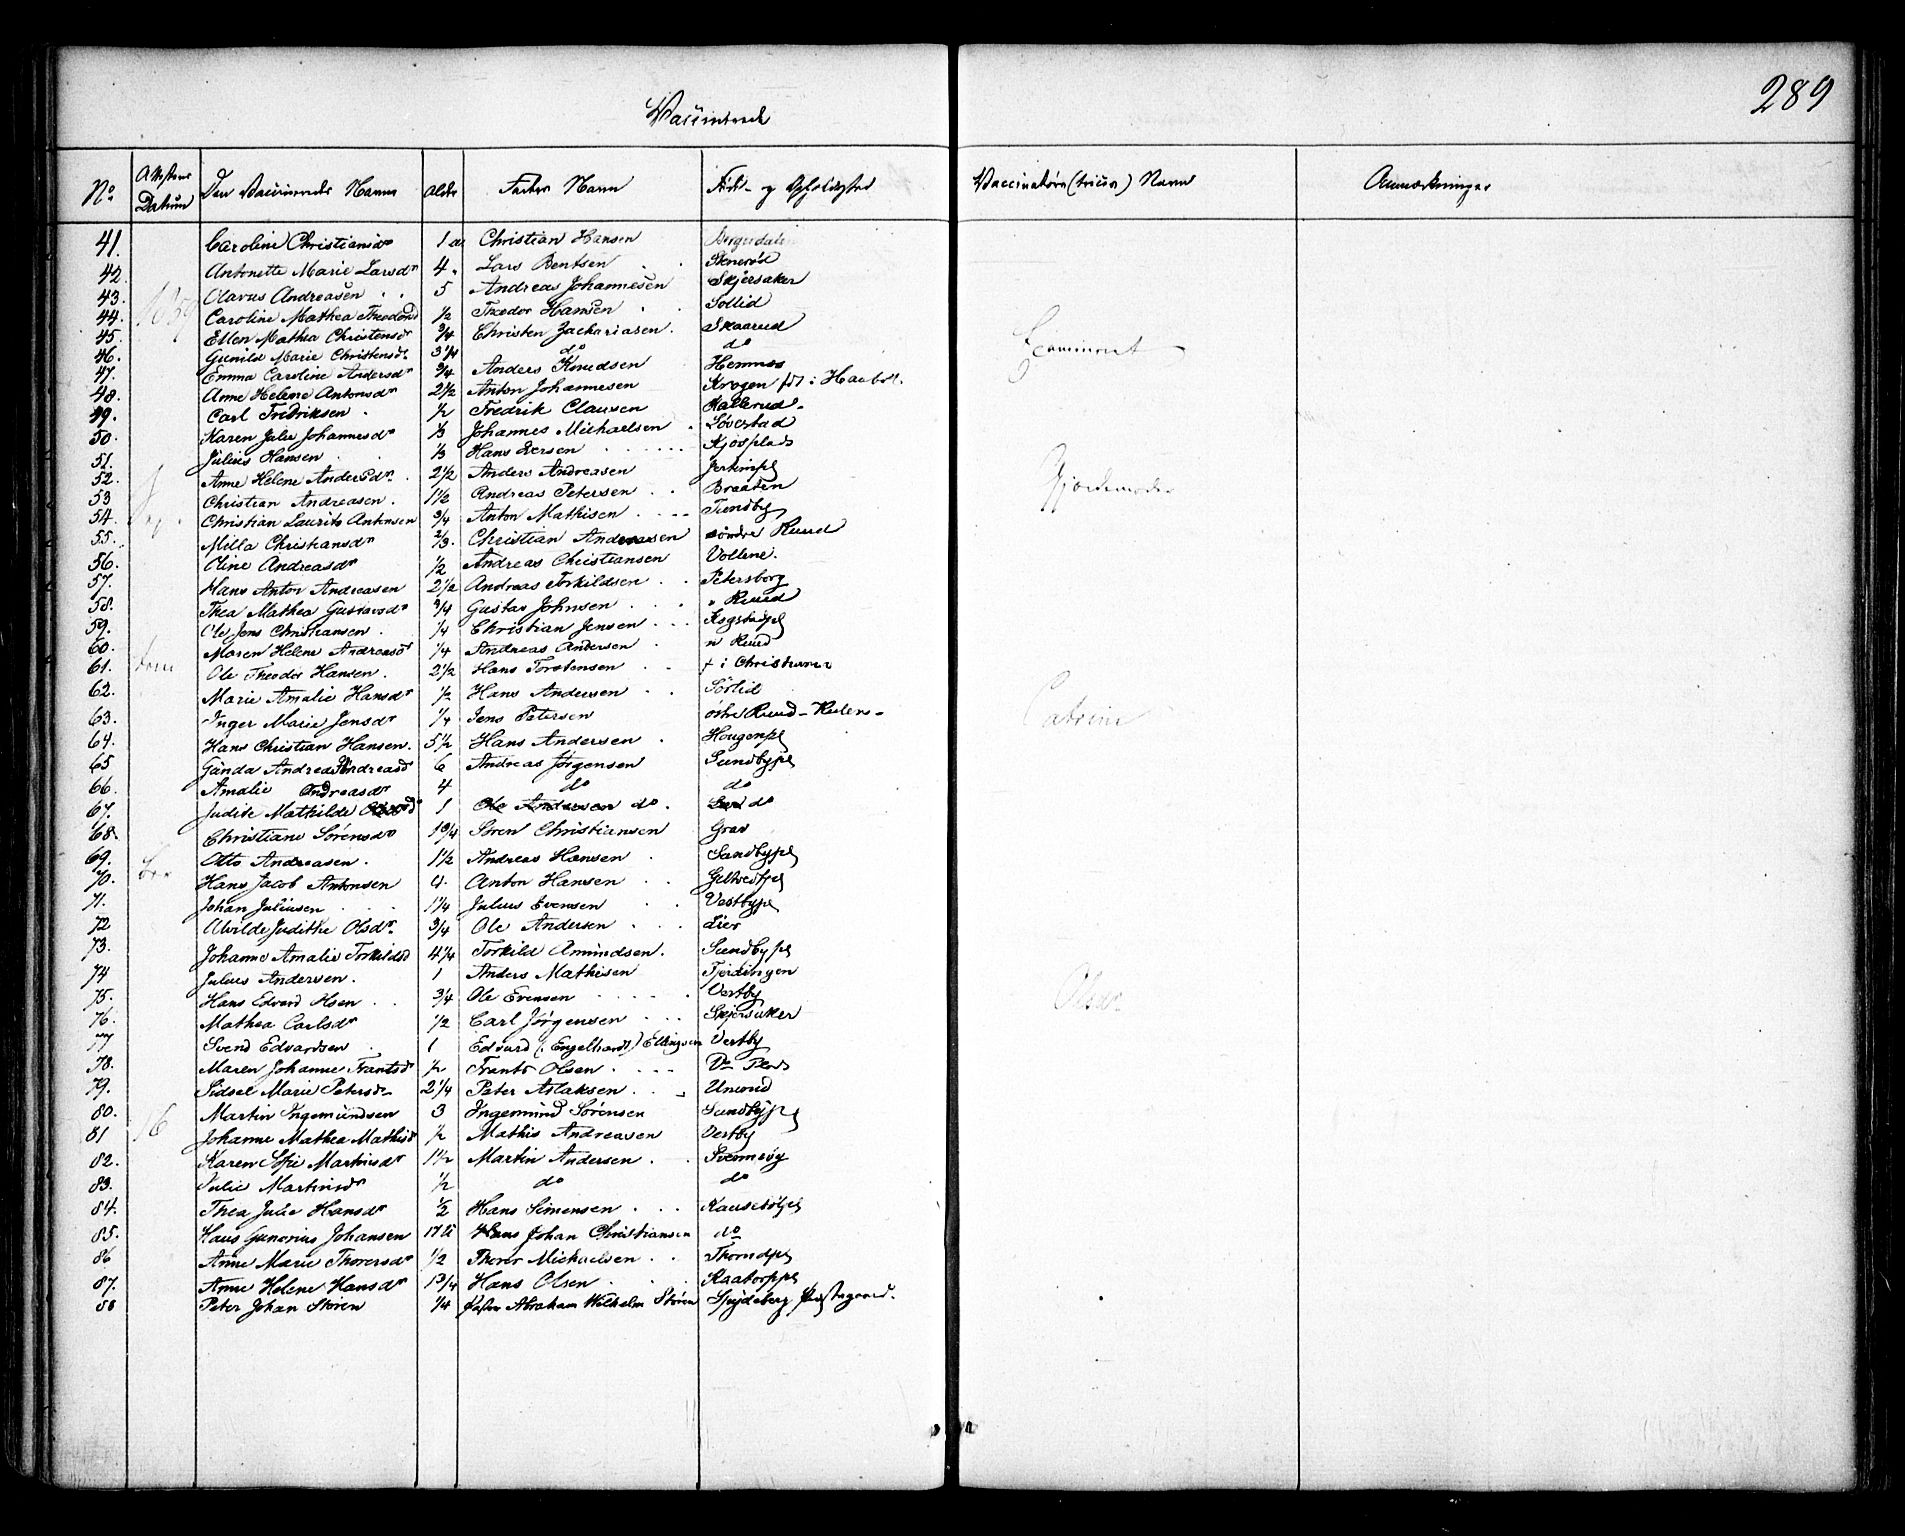 289
Vaccinerede
No Attestens Datum Den Vaccineredes Navn Alder Faders Navn Føde- og Opholdssted Vaccinatørs (tricens) Navn Anmærkninger
41. Caroline Christiansdr 1 Christian Hansen
42. Antonette Marie Larsdr 4 Lars Bentsen
43. Olavus Andreasen 5 Andreas Johannesen Skjersaker
44. Caroline Mathea Theodorsd 1/2 Theodor Hansen Sollid
45. Ellen Mathea Christensdr 3/4 Christen Zachariasen Skaarud
46. Gunild Marie Christensdr 3 1/4 do do
47. Emma Caroline Andersdr 3/4 Anders Knudsen Hemnes
48. Anne Helene Antonsdr 2 1/2 Anton Johannesen Krogen
49. Carl Fredriksen 1/2 Fredrik Clausen
50. Karen Julie Johannesdr 1/3 Johannes Michaelsen Løvestad
51. Julius Hansen 1/3 Hans Iversen
52. Anne Helene Andersdr 2 1/2 Anders Andreasen
53 Christian Andreasen 1 1/2 Andreas Petersen Braaten
54. Christian Laurits Antonsen 3/4 Anton Mathisen Sundby
55. Milla Christiansdr 2/3 Christian Andreassen søndre Ruud
56. Oline Andreasdr 1/2 Andreas Christiansen Vollene.
57. Hans Anton Andreasen 2 1/2 Andreas Torkildsen Petersborg
58. Thea Mathea Gustavsdr 3/4 Gustav Johnsen " Ruud
59. Ole Jens Christiansen 1/4 Christian Jensen
60. Maren Helene Andreasdr 1/4 Andreas Andersen n Ruud
61. Ole Theodor Hansen 2 1/2 Hans Torstensen + i Christiania
62. Marie Amalie Hansdr 1/2 Hans Andersen Sørlid
63. Inger Marie Jensdr 1/4 Jens Petersen østre Ruud
64. Hans Christian Hansen. 5 1/2 Hans Andersen Hougenpl
65 Ginda Andreasdr 6 Andreas Jørgensen Sundbypl
66. Amalie Andreasdr 4 do do
67. Judite Mathilde 1 Ole Andersen do. do
68. Christiane Sørensdr 1 3/4 Søren Christiansen Grav
69. Otto Andreasen 1 1/2 Andreas Hansen Sundbypl
70. Hans Jacob Antonsen 4. Anton Hansen
71. Johan Juliusen 1 1/4 Julius Evensen Vestbypl
72 Alvilde Judithe Olsdr 3/4 Ole Andersen Lier
73. Johanne Amalie Torkildsd 4 1/4 Torkild Amundsen. Sundbypl
74 Julius Andersen. 1 Anders Mathisen Fjerdingen
75. Hans Edvard Olsen 3/4 Ole Evensen Vestby
76. Mathea Carlsdr 1/2 Carl Jørgensen Skjersaker
77 Svend Edvardsen 1 Edvard (: Engelhardt) Ellingsen Vestby
78. Maren Johanne Frantsdr 1/2 Frants Olsen
79. Sidsel Marie Petersdr 2 1/4 Peter Aslaksen
80. Martin Ingemundsen 3 Ingemund Sørensen Sundbypl
81 16 Johanne Mathea Mathisdr 1/2 Mathis Andreasen Vestby
82. Karen Sofie Martinsdr 1 1/2 Martin Andersen
83. Julie Martinsdr 1/2 do do
84. Thea Julie Hansdr 1/2 Hans Simensen
85. Hans Gunerius Johansen Hans Johan Christiansen do
86 Anne Marie Thorersdr 1/2 Thorer Michaelsen
87. Anne Helene Hansdr 1 3/4 Hans Olsen
88 Peter Johan Støren 1/4 Abraham Wilhelm Støren Spydeberg Præstegaard.
1859
Examineret
Gjordemoder
Catrine
Olsdr